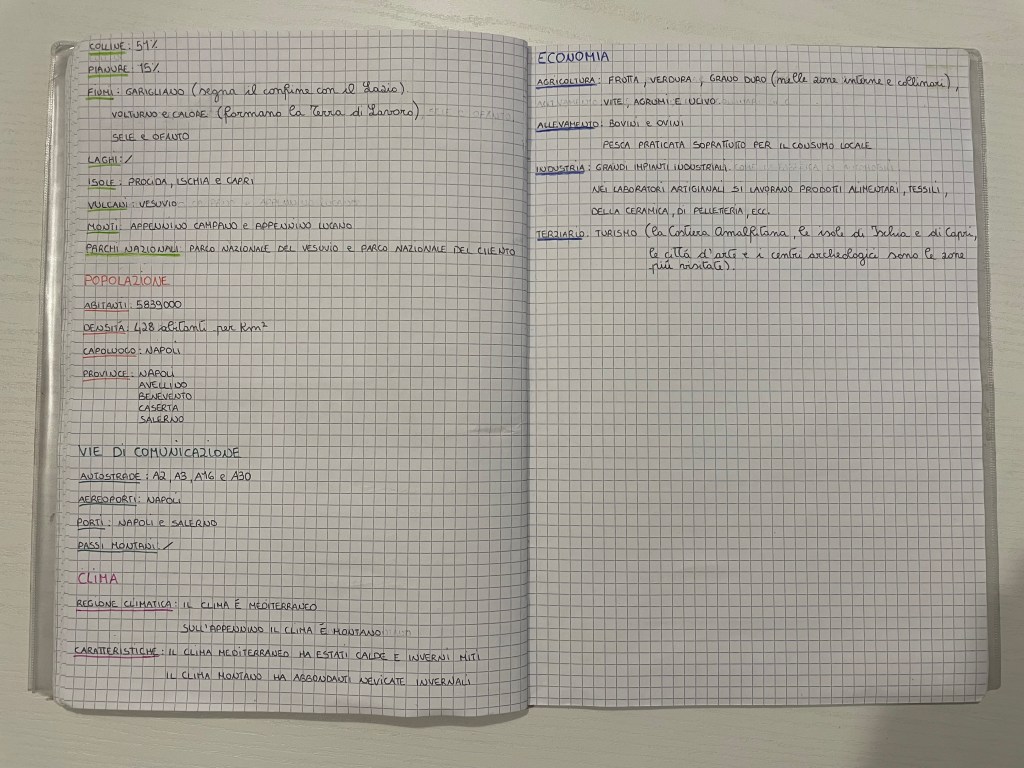 COLLINE: 51%
PIANURE: 15%
FIUMI: GARIGLIANO (segna il confine con il Lazio)
VOLTURNO e CALORE (formano la Terra di Lavoro)
SELE e OFANTO
LAGHI: /
ISOLE: PROCIDA, ISCHIA e CAPRI
VULCANI: VESUVIO
MONTI: APPENNINO CAMPANO e APPENNINO LUCANO
PARCHI NAZIONALI: PARCO NAZIONALE DEL VESUVIO e PARCO NAZIONALE DEL CILENTO
POPOLAZIONE
ABITANTI: 5839000
DENSITÀ: 428 abitanti per Km²
CAPOLUOGO: NAPOLI
PROVINCE: NAPOLI
AVELLINO
BENEVENTO
CASERTA
SALERNO
VIE DI COMUNICAZIONE
AUTOSTRADE: A2, A3, A16 e A30
AEREOPORTI: NAPOLI
PORTI: NAPOLI e SALERNO
PASSI MONTANI: /
CLIMA
REGIONE CLIMATICA: IL CLIMA É MEDITERRANEO
SULL'APPENNINO IL CLIMA É MONTANO
CARATTERISTICHE: IL CLIMA MEDITERRANEO HA ESTATI CALDE E INVERNI MITI
IL CLIMA MONTANO HA ABBONDANTI NEVICATE INVERNALI
ECONOMIA
AGRICOLTURA: FRUTTA, VERDURA, GRANO DURO (nelle zone interne e collinari),
VITE, AGRUMI E ULIVO.
ALLEVAMENTO: BOVINI e OVINI
PESCA PRATICATA SOPRATTUTTO PER IL CONSUMO LOCALE
INDUSTRIA: GRANDI IMPIANTI INDUSTRIALI.
NEI LABORATORI ARTIGIANALI SI LAVORANO PRODOTTI ALIMENTARI, TESSILI,
DELLA CERAMICA, DI PELLETTERIA, ECC.
TERZIARIO: TURISMO (la Costiera Amalfitana, le isole di Ischia e di Capri,
le città d'arte e i centri archeologici sono le zone
più visitate).